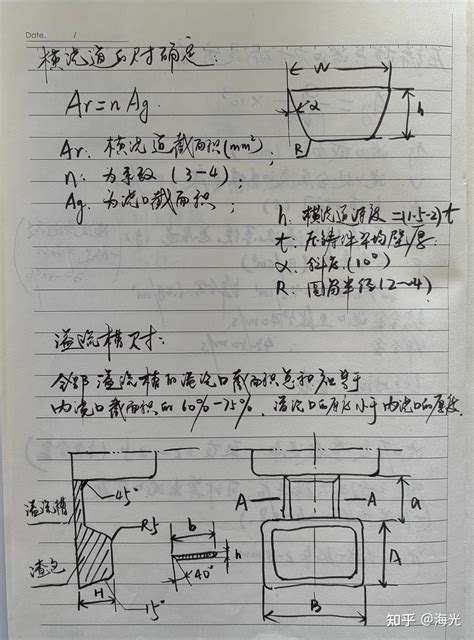 Date. /
横浇道的尺寸确定:
W
α
h
R
Ar=nAg.
Ar: 横浇道截面积(mm²);
n: 为系数 (3-4);
Ag: 为浇口截面积;
h: 横浇道厚度=(1.5-2)t
t: 压铸件平均壁厚;
α: 斜度(10°)
R: 圆角半径(2-4)
溢流槽尺寸:
全部溢流槽的溢流口截面积总和应等于
内浇口截面积的60%-75%. 溢流口的厚度小于内浇口的厚度
溢流槽
渣包
45°
R5
H
15°
b
h
40°
A A
a
A
B
知乎 @海光